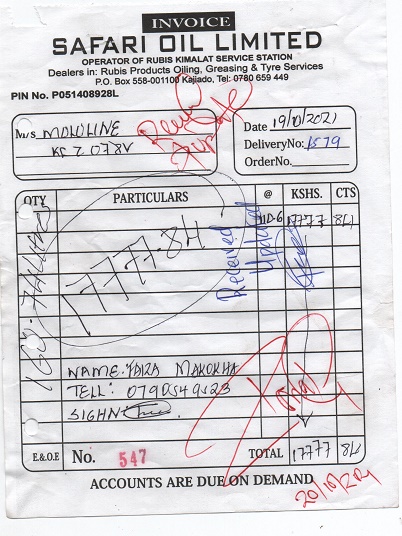 INVOICE
SAFARI OIL LIMITED
OPERATOR OF RUBIS KIMALAT SERVICE STATION
Dealers in: Rubis Products Oiling, Greasing & Tyre Services
P.O. Box 558-001100 Kajiado, Tel: 0780 659 449
PIN No. P051408928L
M/S MOLOLINE
KCZ 078V
Date 19/10/2021
DeliveryNo: 1579
OrderNo.
QTY PARTICULARS @ KSHS. CTS
110-6 17777 84
17777.84
Received
Updated
NAME: FAIZA MAKOKHA
TELL: 0790549523
SIGHN
E.&O.E No. 547 TOTAL 17777 84
ACCOUNTS ARE DUE ON DEMAND